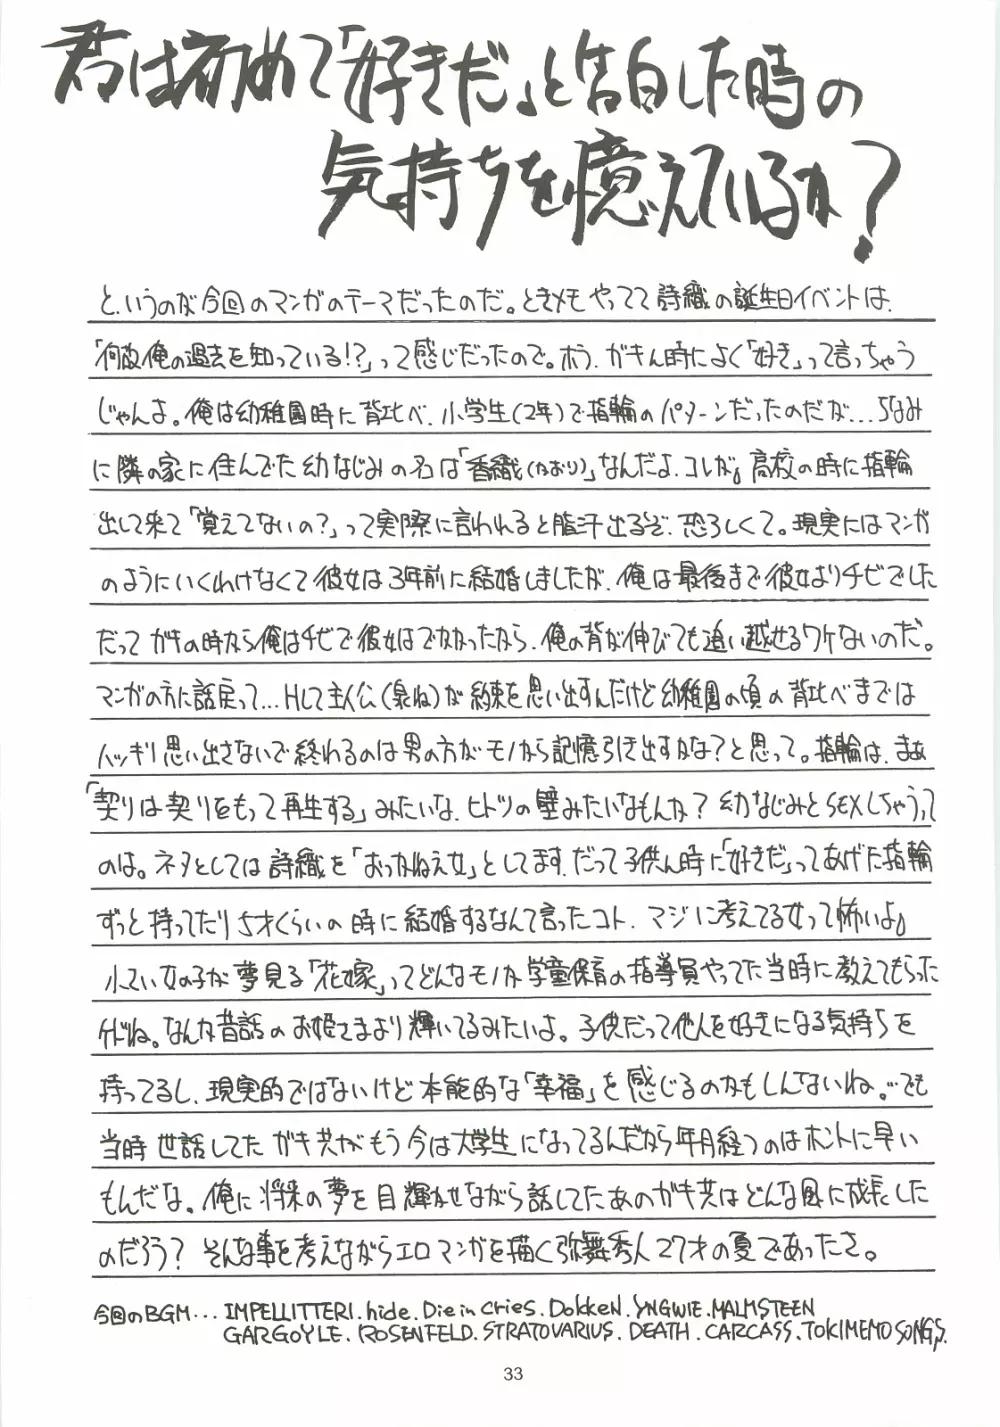 君は初めて「好きだ」と告白した時の
気持ちを憶えているか？
というのが今回のマンガのテーマだったのだ。ときメモやってて詩織の誕生日イベントは、
「何故俺の過去を知っている!?」って感じだったので。ホラ、ガキん時によく「好き」って言っちゃう
じゃんよ。俺は幼稚園時に背比べ、小学生(2年)で指輪のパターンだったのだが...ちなみ
に隣の家に住んでた幼なじみの名は「香織(かおり)」なんだよ、コレが。高校の時に指輪
出して来て「覚えてないの？」って実際に言われると脂汗出るぞ、恐ろしくて。現実にはマンガ
のようにいくわけなくて彼女は3年前に結婚しましたが、俺は最後まで彼女よりチビでした
だってガキの時から俺はチビで彼女はでかかったから、俺の背が伸びても追い越せるワケないのだ。
マンガの方に話戻って...Hして主人公(泉ね)が約束を思い出すんだけど幼稚園の頃の背比べまでは
ハッキリ思い出さないで終わるのは男の方がモノから記憶引き出すかな？と思って。指輪は、まあ
「契りは契りをもって再生する」みたいな、ヒトツの壁みたいなもんか？幼なじみとSEXしちゃうって
のは。ネタとしては詩織を「おっかねえ女」としてます。だって子供ん時に「好きだ」ってあげた指輪
ずっと持ってたり5才くらいの時に結婚するなんて言ったコト、マジに考えてる女って怖いよ。
小さい女の子が夢見る「花嫁」ってどんなモノか学童保育の指導員やってた当時に教えてもらった
ケドね。なんか昔話のお姫さまより輝いてるみたいよ。子供だって他人を好きになる気持ちを
持ってるし、現実的ではないけど本能的な「幸福」を感じるのかもしんないね。...でも
当時世話してたガキ共がもう今は大学生になってるんだから年月経つのはホントに早い
もんだな。俺に将来の夢を目輝かせながら話してたあのガキ共はどんな風に成長した
のだろう？そんな事を考えながらエロマンガを描く弥舞秀人27才の夏であったさ。
今回のBGM... IMPELLITTERI. hide. Die in Cries. DOKKEN. YNGWIE. MALMSTEEN
GARGOYLE. ROSENFELD. STRATOVARIUS. DEATH. CARCASS. TOKIMEMO SONGS.
33